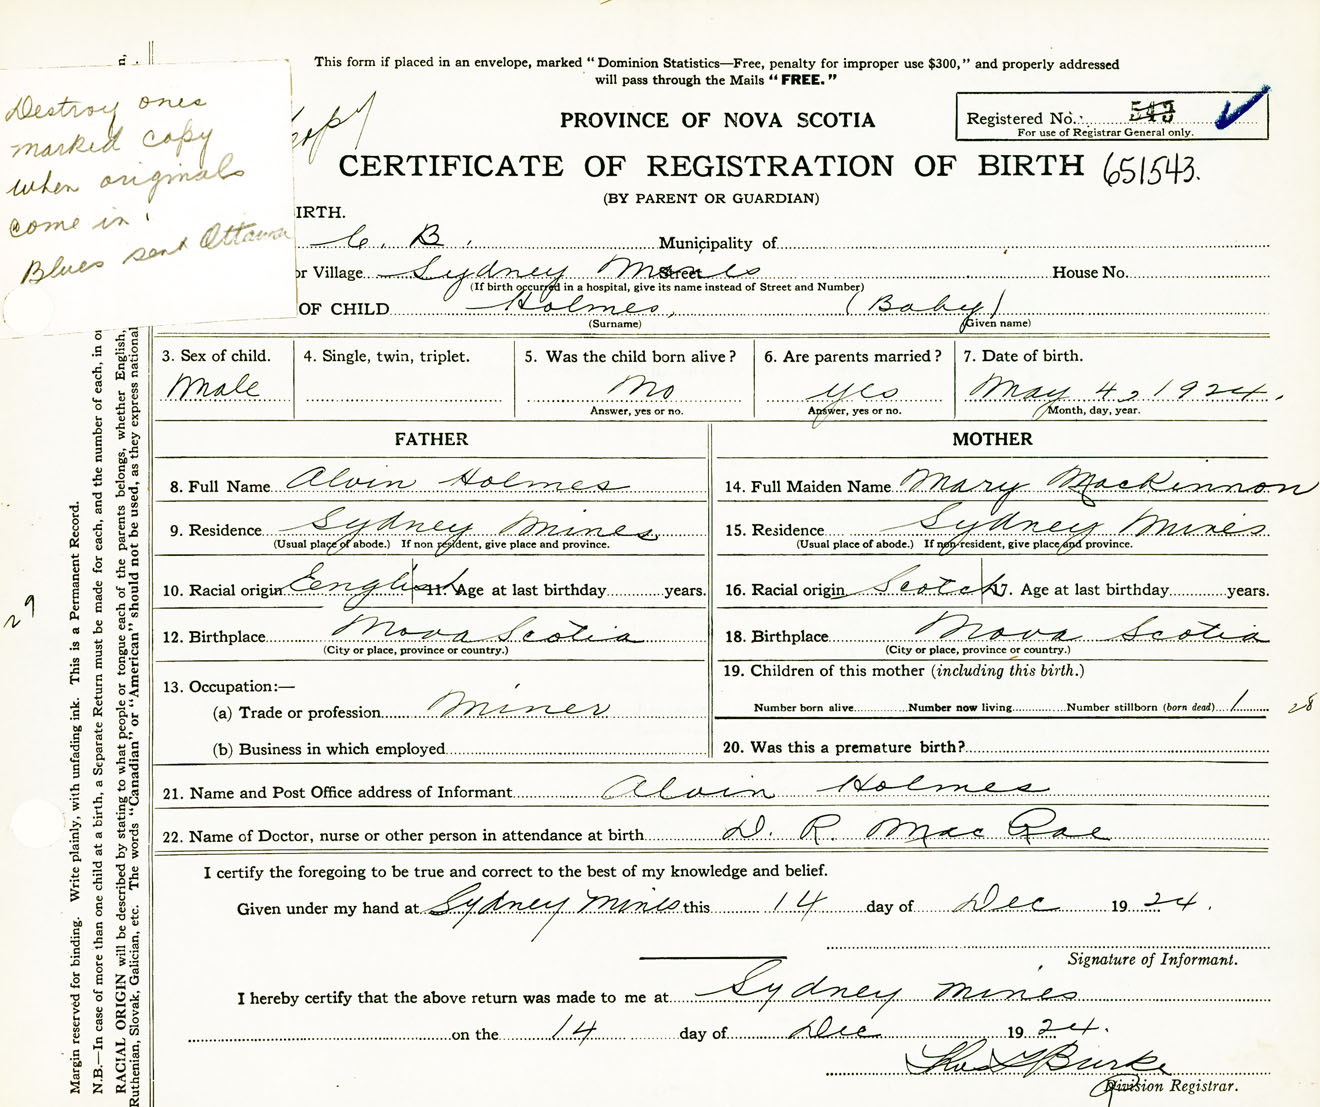 This form if placed in an envelope, marked "Dominion Statistics—Free, penalty for improper use $300," and properly addressed
will pass through the Mails "FREE."
Destroy ones
marked copy
when originals
come in!
Blues sent Ottawa
Copy
PROVINCE OF NOVA SCOTIA
Registered No. 543
For use of Registrar General only.
CERTIFICATE OF REGISTRATION OF BIRTH 651543.
(BY PARENT OR GUARDIAN)
IRTH.
C. B. Municipality of
or Village Sydney Mines Street House No.
(If birth occurred in a hospital, give its name instead of Street and Number)
OF CHILD Holmes, (Baby)
(Surname) (Given name)
3. Sex of child. 4. Single, twin, triplet. 5. Was the child born alive? 6. Are parents married? 7. Date of birth.
Male No yes May 4, 1924.
Answer, yes or no. Answer, yes or no. Month, day, year.
FATHER MOTHER
8. Full Name Alvin Holmes 14. Full Maiden Name Mary MacKinnon
9. Residence Sydney Mines 15. Residence Sydney Mines
(Usual place of abode.) If non resident, give place and province. (Usual place of abode.) If non-resident, give place and province.
10. Racial origin Eenglish 11. Age at last birthday years. 16. Racial origin Scotch 17. Age at last birthday years.
12. Birthplace Nova Scotia 18. Birthplace Nova Scotia
(City or place, province or country.) (City or place, province or country.)
13. Occupation:— 19. Children of this mother (including this birth.)
(a) Trade or profession Miner Number born alive Number now living Number stillborn (born dead) 1 28
(b) Business in which employed 20. Was this a premature birth?
21. Name and Post Office address of Informant Alvin Holmes
22. Name of Doctor, nurse or other person in attendance at birth D. R. MacRae
I certify the foregoing to be true and correct to the best of my knowledge and belief.
Given under my hand at Sydney Mines this 14 day of Dec 1924.
Signature of Informant.
I hereby certify that the above return was made to me at Sydney Mines
on the 14 day of Dec 1924.
Thos Burke
Division Registrar.
29
Margin reserved for binding. Write plainly, with unfading ink. This is a Permanent Record.
N.B.—In case of more than one child at a birth, a Separate Return must be made for each, and the number of each, in or
RACIAL ORIGIN will be described by stating to what people or tongue each of the parents belongs, whether English,
Ruthenian, Slovak, Galician, etc. The words "Canadian" or "American" should not be used, as they express national